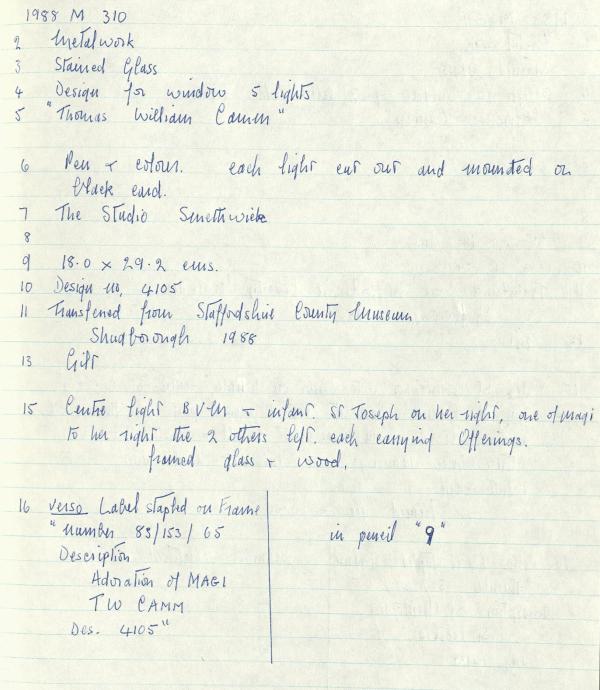 1988 M 310
2 Metalwork
3 Stained Glass
4 Design for window 5 lights
5 "Thomas William Camm"
6 Pen & colour. each light cut out and mounted on
black card.
7 The Studio Smethwick
8
9 18.0 x 29.2 cms.
10 Design no. 4105
11 Transferred from Staffordshire County Museum
Shugborough 1988
13 Gift
15 Centre light BVM & infant. St Joseph on her right, one of magi
to her right the 2 others left. each carrying Offerings.
framed glass & wood.
16 verso Label stapled on Frame
"number 83/153/65
Description
Adoration of MAGI
TW CAMM
Des. 4105"
in pencil "9"